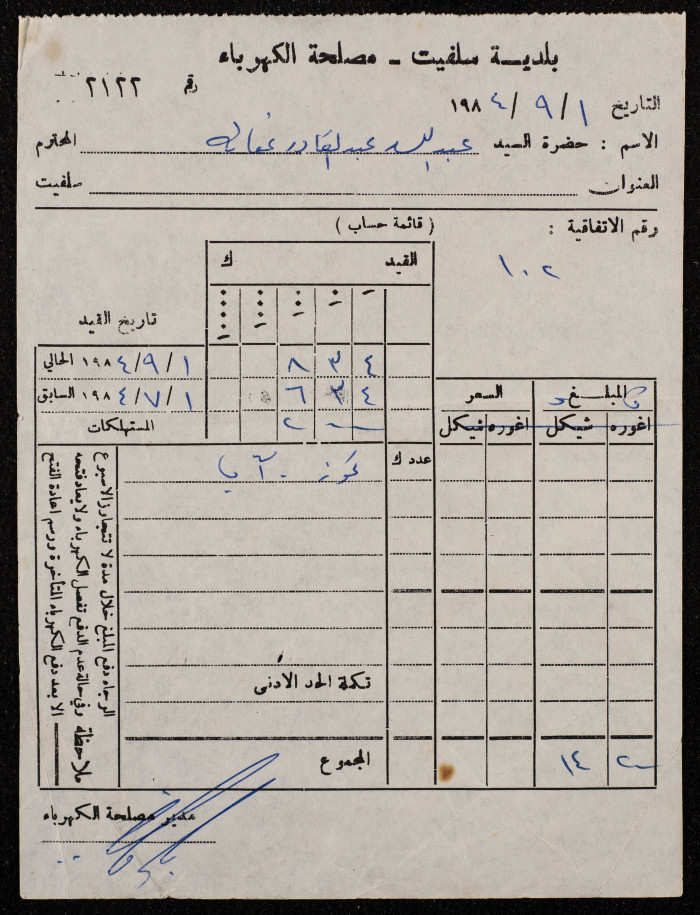 بلدية سلفيت - مصلحة الكهرباء
رقم ٢١٢٢
التاريخ ١ / ٩ / ١٩٨٤
الاسم : حضرة السيد عبد الله عبد القادر عفانه المحترم
العنوان سلفيت
رقم الاتفاقية :
( قائمة حساب )
١٠٢
القيد ك
تاريخ القيد
١ / ٩ / ١٩٨٤ الحالي ٨ ٣ ٤
١ / ٧ / ١٩٨٤ السابق ٦ ٣ ٤
المستهلكات ٢
المبلغ السعر
اغوره شيكل اغوره شيكل
عدد ك
تموز آب
تكملة الحد الادنى
المجموع ١٤
ملاحظة الرجاء دفع المبلغ خلال مدة لا تتجاوز الاسبوع
وفي حالة عدم الدفع تفصل الكهرباء ولا يعاد فتحه
الا بعد دفع الكهرباء المتأخرة ورسم اعادة الفتح
مدير مصلحة الكهرباء